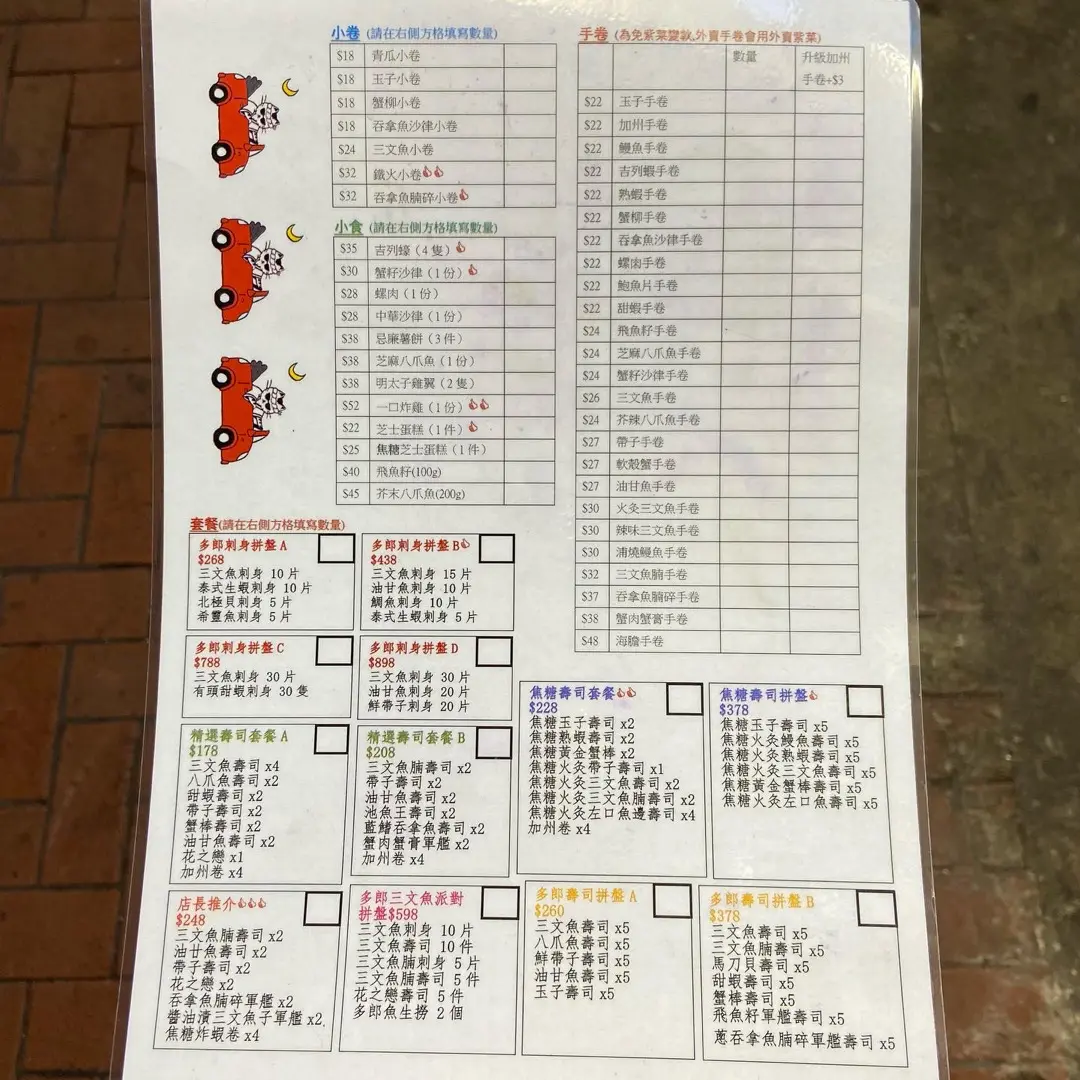 小卷 (請在右側方格填寫數量)
$18 青瓜小卷
$18 玉子小卷
$18 蟹柳小卷
$18 吞拿魚沙律小卷
$24 三文魚小卷
$32 鐵火小卷
$32 吞拿魚腩碎小卷
小食 (請在右側方格填寫數量)
$35 吉列蠔（4 隻）
$30 蟹籽沙律（1 份）
$28 螺肉（1 份）
$28 中華沙律（1 份）
$38 忌廉薯餅（3 件）
$38 芝麻八爪魚（1 份）
$38 明太子雞翼（2 隻）
$52 一口炸雞（1 份）
$22 芝士蛋糕（1 件）
$25 焦糖芝士蛋糕（1 件）
$40 飛魚籽(100g)
$45 芥末八爪魚(200g)
手卷 (為免紫菜變軟,外賣手卷會用外賣紫菜)
數量 升級加州
手卷+$3
$22 玉子手卷
$22 加州手卷
$22 鰻魚手卷
$22 吉列蝦手卷
$22 熟蝦手卷
$22 蟹柳手卷
$22 吞拿魚沙律手卷
$22 螺肉手卷
$22 鮑魚片手卷
$22 甜蝦手卷
$24 飛魚籽手卷
$24 芝麻八爪魚手卷
$24 蟹籽沙律手卷
$26 三文魚手卷
$24 芥辣八爪魚手卷
$27 帶子手卷
$27 軟殼蟹手卷
$27 油甘魚手卷
$30 火炙三文魚手卷
$30 辣味三文魚手卷
$30 浦燒鰻魚手卷
$32 三文魚腩手卷
$37 吞拿魚腩碎手卷
$38 蟹肉蟹膏手卷
$48 海膽手卷
套餐(請在右側方格填寫數量)
多郎刺身拼盤 A
$268
三文魚刺身 10 片
泰式生蝦刺身 10 片
北極貝刺身 5 片
希靈魚刺身 5 片
多郎刺身拼盤 B
$438
三文魚刺身 15 片
油甘魚刺身 10 片
鯛魚刺身 10 片
泰式生蝦刺身 5 片
多郎刺身拼盤 C
$788
三文魚刺身 30 片
有頭甜蝦刺身 30 隻
多郎刺身拼盤 D
$898
三文魚刺身 30 片
油甘魚刺身 20 片
鮮帶子刺身 20 片
精選壽司套餐 A
$178
三文魚壽司 x4
八爪魚壽司 x2
甜蝦壽司 x2
帶子壽司 x2
蟹棒壽司 x2
油甘魚壽司 x2
花之戀 x1
加州卷 x4
精選壽司套餐 B
$208
三文魚腩壽司 x2
帶子壽司 x2
油甘魚壽司 x2
池魚王壽司 x2
藍鰭吞拿魚壽司 x2
蟹肉蟹膏軍艦 x2
加州卷 x4
焦糖壽司套餐
$228
焦糖玉子壽司 x2
焦糖熟蝦壽司 x2
焦糖黃金蟹棒 x2
焦糖火灸帶子壽司 x1
焦糖火灸三文魚壽司 x2
焦糖火灸三文魚腩壽司 x2
焦糖火灸左口魚邊壽司 x4
加州卷 x4
焦糖壽司拼盤
$378
焦糖玉子壽司 x5
焦糖火灸鰻魚壽司 x5
焦糖火灸熟蝦壽司 x5
焦糖火灸三文魚壽司 x5
焦糖黃金蟹棒壽司 x5
焦糖火灸左口魚壽司 x5
店長推介
$248
三文魚腩壽司 x2
油甘魚壽司 x2
帶子壽司 x2
花之戀 x2
吞拿魚腩碎軍艦 x2
醬油漬三文魚子軍艦 x2
焦糖炸蝦卷 x4
多郎三文魚派對
拼盤$598
三文魚刺身 10 片
三文魚壽司 10 件
三文魚腩刺身 5 片
三文魚腩壽司 5 件
花之戀壽司 5 件
多郎魚生撈 2 個
多郎壽司拼盤 A
$260
三文魚壽司 x5
八爪魚壽司 x5
鮮帶子壽司 x5
油甘魚壽司 x5
玉子壽司 x5
多郎壽司拼盤 B
$378
三文魚壽司 x5
三文魚腩壽司 x5
馬刀貝壽司 x5
甜蝦壽司 x5
蟹棒壽司 x5
飛魚籽軍艦壽司 x5
蔥吞拿魚腩碎軍艦壽司 x5